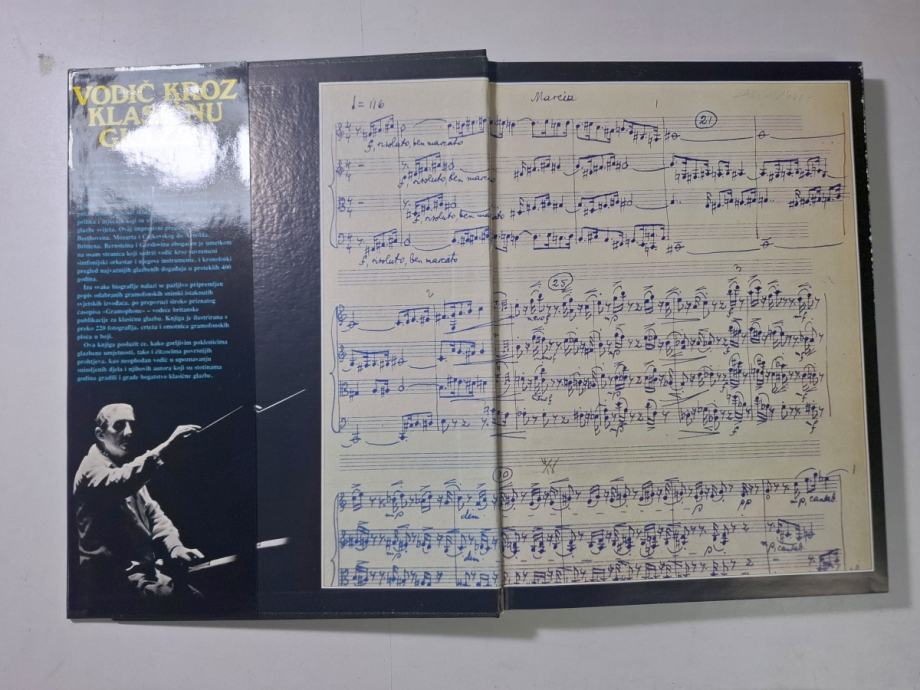 VODIČ KROZ
glazbe svijeta. Ovaj impresivni
Beethovena, Mozarta i Čajkovskog do
Brittena, Bernsteina i Gershwina obogaćen je umetkom
na osam stranica koji sadrži vodič kroz suvremeni
simfonijski orkestar i njegove instrumente, i kronološki
pregled najvažnijih glazbenih događaja u proteklih 400
godina.
Iza svake biografije nalazi se pažljivo pripremljen
popis odabranih gramofonskih snimki istaknutih
svjetskih izvođača, po preporuci široko priznatog
časopisa »Gramophone« – vodeće britanske
publikacije za klasičnu glazbu. Knjiga je ilustrirana s
preko 220 fotografija, crteža i omotnica gramofonskih
ploča u boji.
Ova knjiga poslužit će, kako gorljivim poklonicima
glazbene umjetnosti, tako i čitaocima površnijih
prohtjeva, kao neophodan vodič u upoznavanju
djela i njihovih autora koji su stotinama
godina gradili i grade bogatstvo klasične glazbe.
♩= 116
Marcia
1
21
f, risoluto, ben marcato
f, risoluto, ben marcato
f, risoluto, ben marcato
f, risoluto, ben marcato
2
25
3
30
dim
p
pp
p, cantab
dim
p
p, cantab